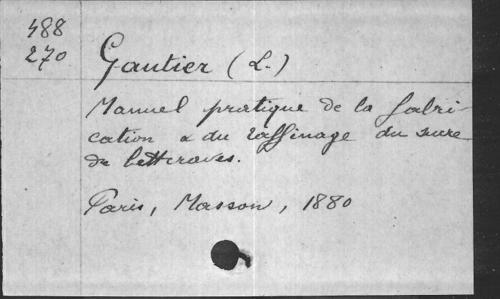 488
270
Gautier (L.)
Manuel pratique de la fabri-
cation & du raffinage du sucre
de betteraves.
Paris, Masson, 1880